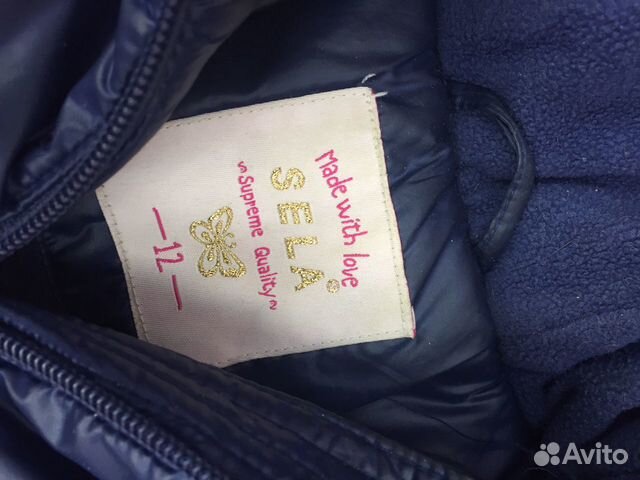 Made with love
SELA
~Supreme Quality~
—12—
Avito